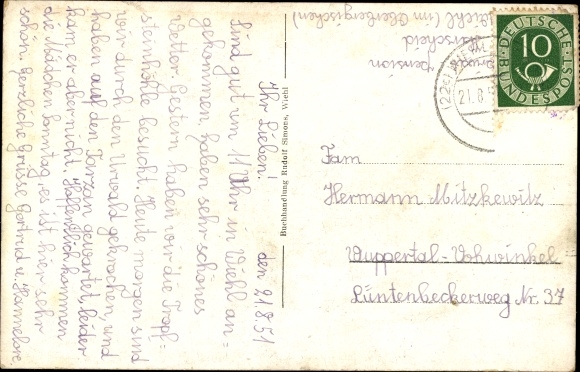 den 21.8.51
Ihr Lieben!
Sind gut um 11 Uhr in Wiehl an=
gekommen haben sehr schönes
Wetter. Gestern haben wir die Tropf=
steinhöhle besucht. Heute morgen sind
wir durch den Urwald gekrochen, und
haben auf den Tarzan gewartet, leider
kam er aber nicht. Hoffentlich kommen
die Mädchen Sonntag, es ist hier sehr
schön. Herzliche Grüsse Gertrud u. Hannelore.
Buchhandlung Rudolf Simons, Wiehl
Pension
Wiehl (im Oberbergischen)
DEUTSCHE BUNDESPOST
10
(22
21.8.5
Fam
Hermann Mitzkewitz
Wuppertal-Vohwinkel
Lüntenbeckerweg Nr. 37